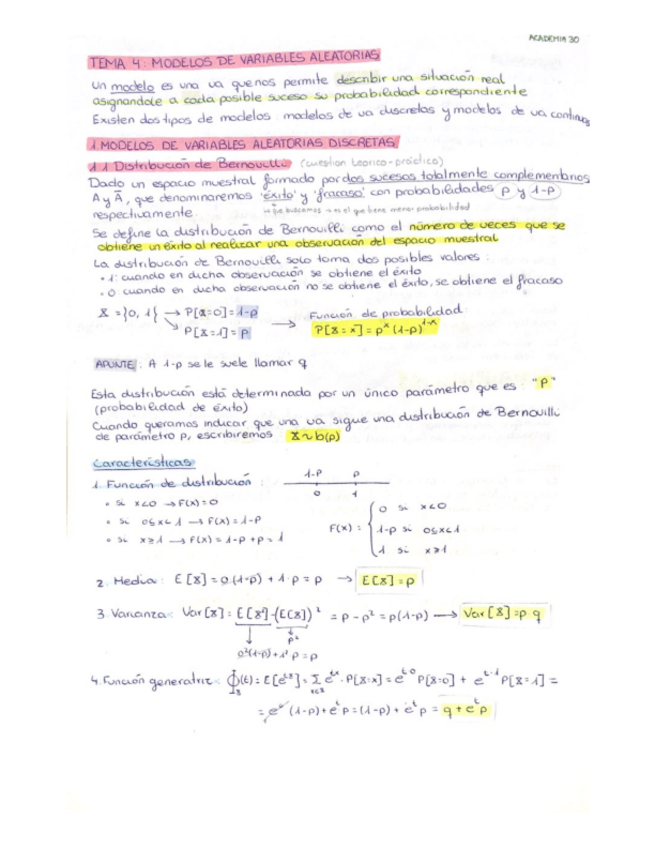 ACADEMIA 30
TEMA 4: MODELOS DE VARIABLES ALEATORIAS
Un modelo es una va que nos permite describir una situación real
asignandole a cada posible suceso su probabilidad correspondiente
Existen dos tipos de modelos: modelos de va discretas y modelos de va continuas
1 MODELOS DE VARIABLES ALEATORIAS DISCRETAS
1.1 Distribución de Bernouilli (cuestion teorico-práctico)
Dado un espacio muestral formado por dos sucesos totalmente complementarios
A y Ā, que denominaremos 'éxito' y 'fracaso' con probabilidades p y 1-p
respectivamente. → que buscamos → es el que tiene menor probabilidad
Se define la distribución de Bernouilli como el número de veces que se
obtiene un éxito al realizar una observación del espacio muestral
La distribución de Bernouilli solo toma dos posibles valores:
• 1: cuando en dicha observación se obtiene el éxito
• 0: cuando en dicha observación no se obtiene el éxito, se obtiene el fracaso
X = {0, 1} → P[X=0] = 1-p
→ P[X=1] = p
→ Función de probabilidad:
P[X=x] = p^x (1-p)^1-x
APUNTE: A 1-p se le suele llamar q
Esta distribución está determinada por un único parámetro que es: "P"
(probabilidad de éxito)
Cuando queramos indicar que una va sigue una distribución de Bernouilli
de parámetro p, escribiremos X~b(p)
Características
1. Función de distribución: 1-p p
0 1
• si x<0 → F(x)=0
• si 0≤x<1 → F(x)=1-p
• si x≥1 → F(x)=1-p+p=1
F(x) = { 0 si x<0
1-p si 0≤x<1
1 si x≥1
2. Media: E[X]=0·(1-p)+1·p=p → E[X]=p
3. Varianza: Var[X]=E[X²]-(E[X])² = p-p² = p(1-p) → Var[X]=p·q
p²
0²(1-p)+1²p=p
4. Función generatriz: ϕ_X(t)=E[e^tX]=Σ_x∈X e^tx·P[X=x]=e^t·0 P[X=0]+e^t·1 P[X=1]=
=e⁰(1-p)+e^t p=(1-p)+e^t p=q+e^t p